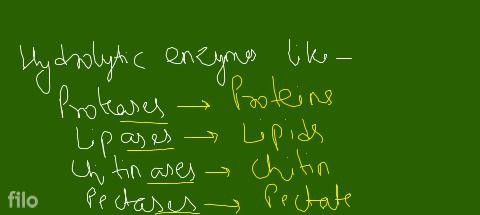 Hydrolytic enzymes like -
Proteases → Proteins
Lipases → Lipids
Chitinases → Chitin
Pectases → Pectate
filo